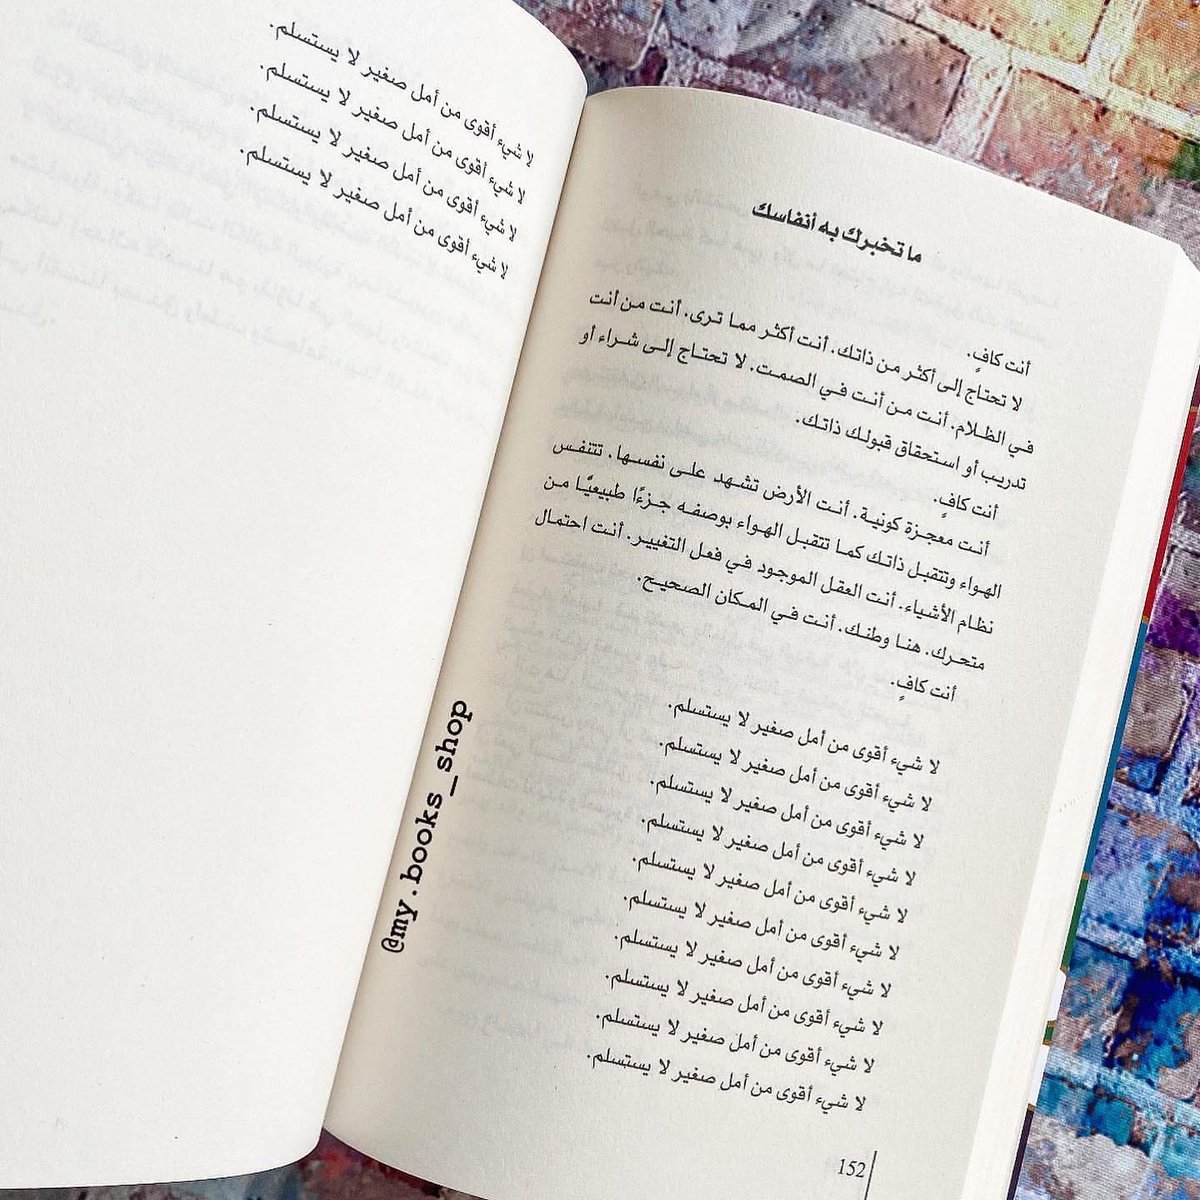 ما تخبرك به أنفاسك
أنت كافٍ.
لا تحتاج إلى أكثر من ذاتك. أنت أكثر مما ترى. أنت من أنت
في الظلام. أنت من أنت في الصمت. لا تحتاج إلى شراء أو
تدريب أو استحقاق قبولك ذاتك.
أنت كافٍ.
أنت معجزة كونية. أنت الأرض تشهد على نفسها. تتنفس
الهواء وتتقبل ذاتك كما تتقبل الهواء بوصفه جزءًا طبيعيًّا من
نظام الأشياء. أنت العقل الموجود في فعل التغيير. أنت احتمال
متحرك. هنا وطنك. أنت في المكان الصحيح.
أنت كافٍ.
لا شيء أقوى من أمل صغير لا يستسلم.
لا شيء أقوى من أمل صغير لا يستسلم.
لا شيء أقوى من أمل صغير لا يستسلم.
لا شيء أقوى من أمل صغير لا يستسلم.
لا شيء أقوى من أمل صغير لا يستسلم.
لا شيء أقوى من أمل صغير لا يستسلم.
لا شيء أقوى من أمل صغير لا يستسلم.
لا شيء أقوى من أمل صغير لا يستسلم.
لا شيء أقوى من أمل صغير لا يستسلم.
لا شيء أقوى من أمل صغير لا يستسلم.
152
لا شيء أقوى من أمل صغير لا يستسلم.
لا شيء أقوى من أمل صغير لا يستسلم.
لا شيء أقوى من أمل صغير لا يستسلم.
لا شيء أقوى من أمل صغير لا يستسلم.
@my.books_shop